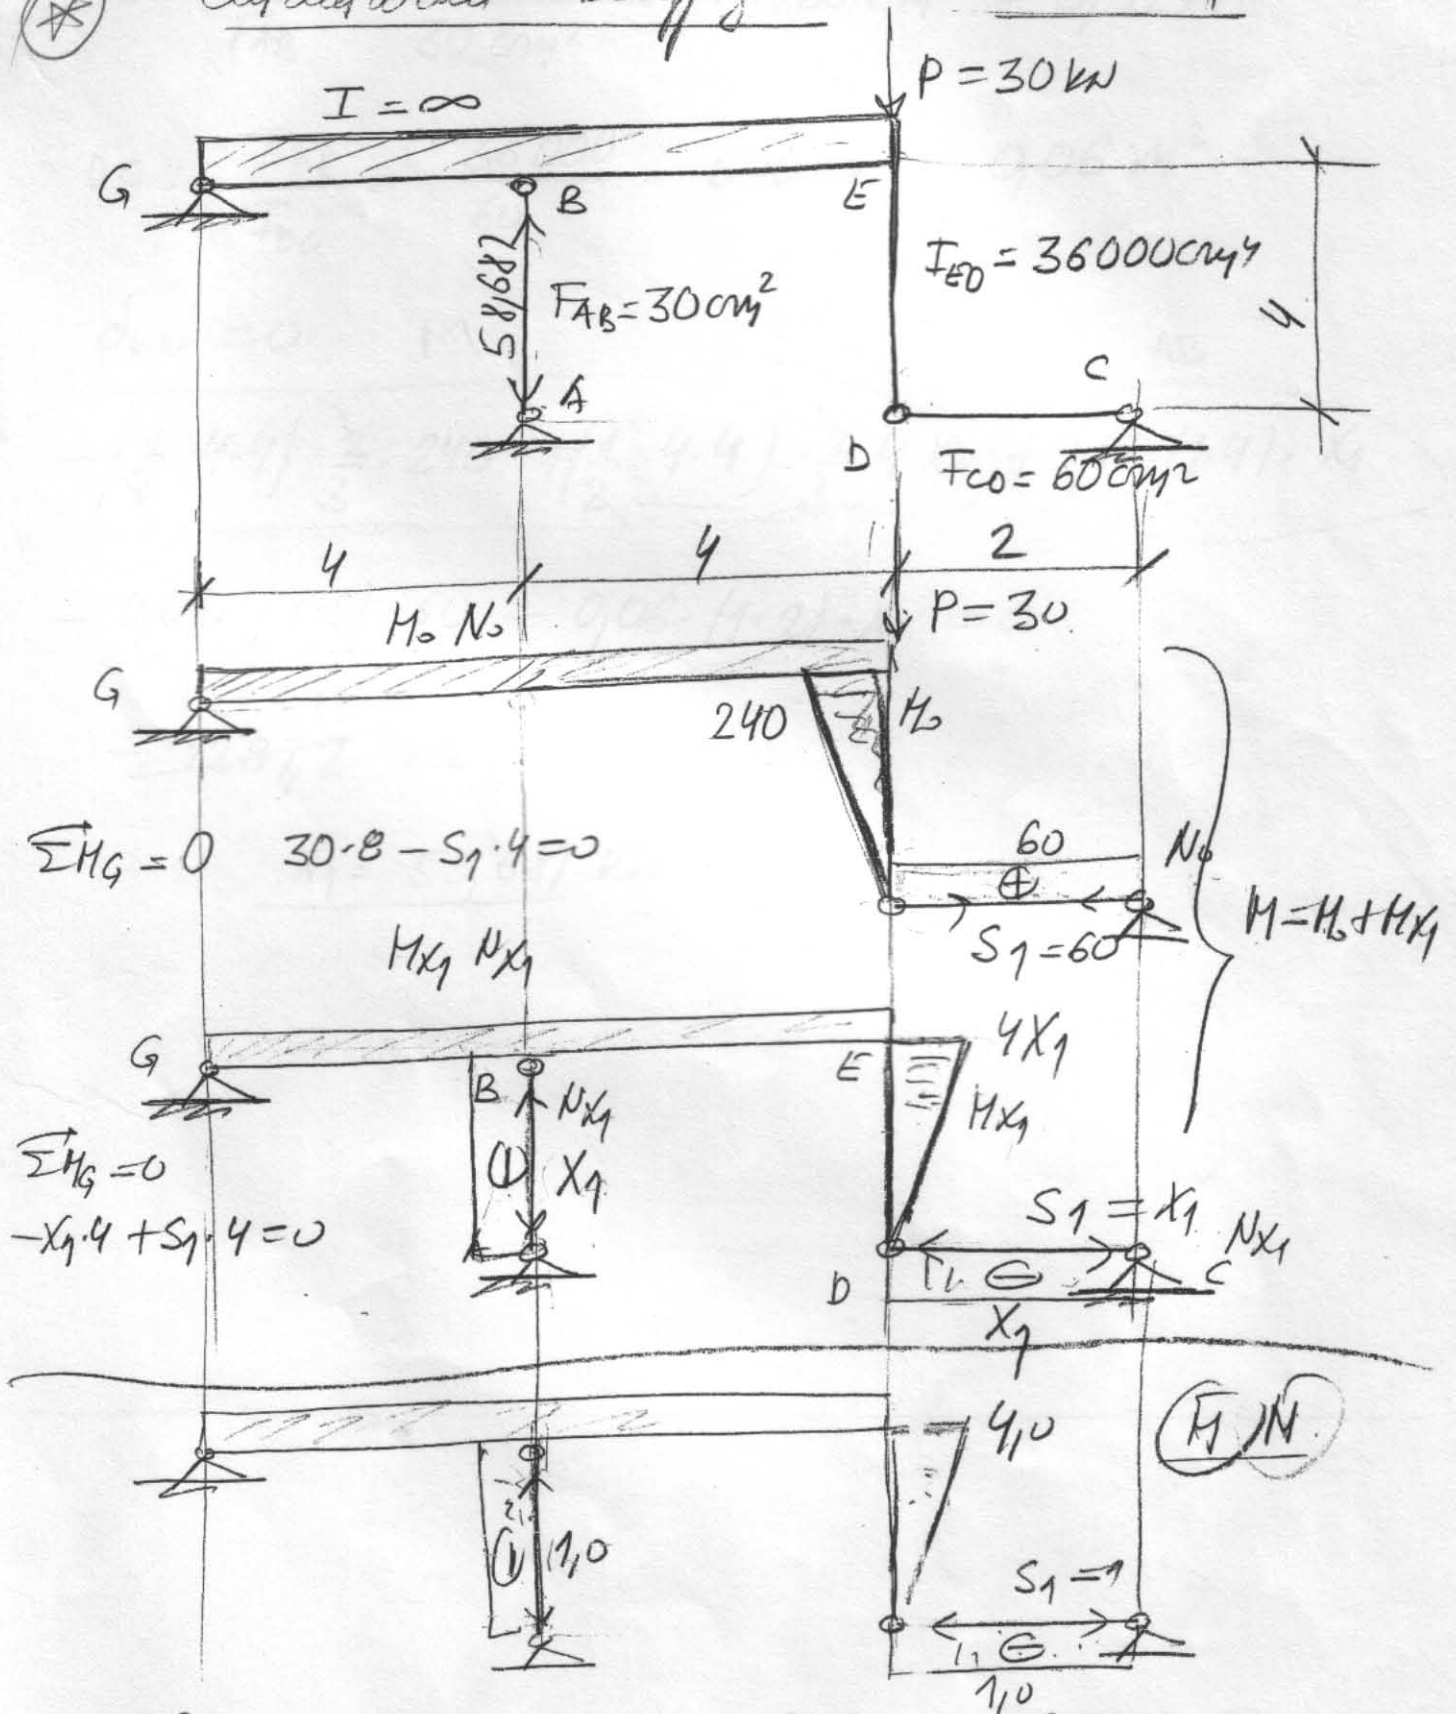 P = 30 kN
I = ∞
G
B
E
I_ED = 36000 cm⁴
58,682
F_AB = 30 cm²
4
A
C
D
F_CD = 60 cm²
4
4
2
M₀ N₀
P = 30
G
240
M₀
ΣM_G = 0 30·8 − S₁·4 = 0
60
N₀
⊕
S₁ = 60
M = M₀ + Mx₁
Mx₁ Nx₁
G
B
Nx₁
E
4X₁
Mx₁
ΣM_G = 0
X₁
−X₁·4 + S₁·4 = 0
S₁ = X₁
Nx₁
D
⊖
C
X₁
4,0
M̄, N̄
1,0
S₁ = 1
⊖
1,0